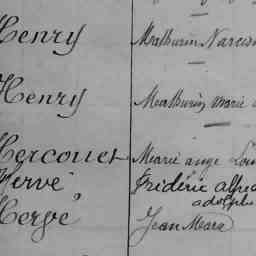 Henry Mathurin Narciss
Henry Mathurin Marie
Hercouet Marie ange Lou
Hervé Frédéric alfred
adolphe
Hervé Jean Marx